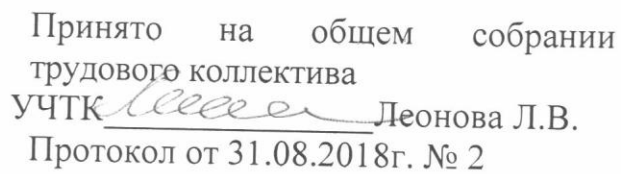 Принято на общем собрании
трудового коллектива
УЧТК Леонова Л.В.
Протокол от 31.08.2018г. № 2